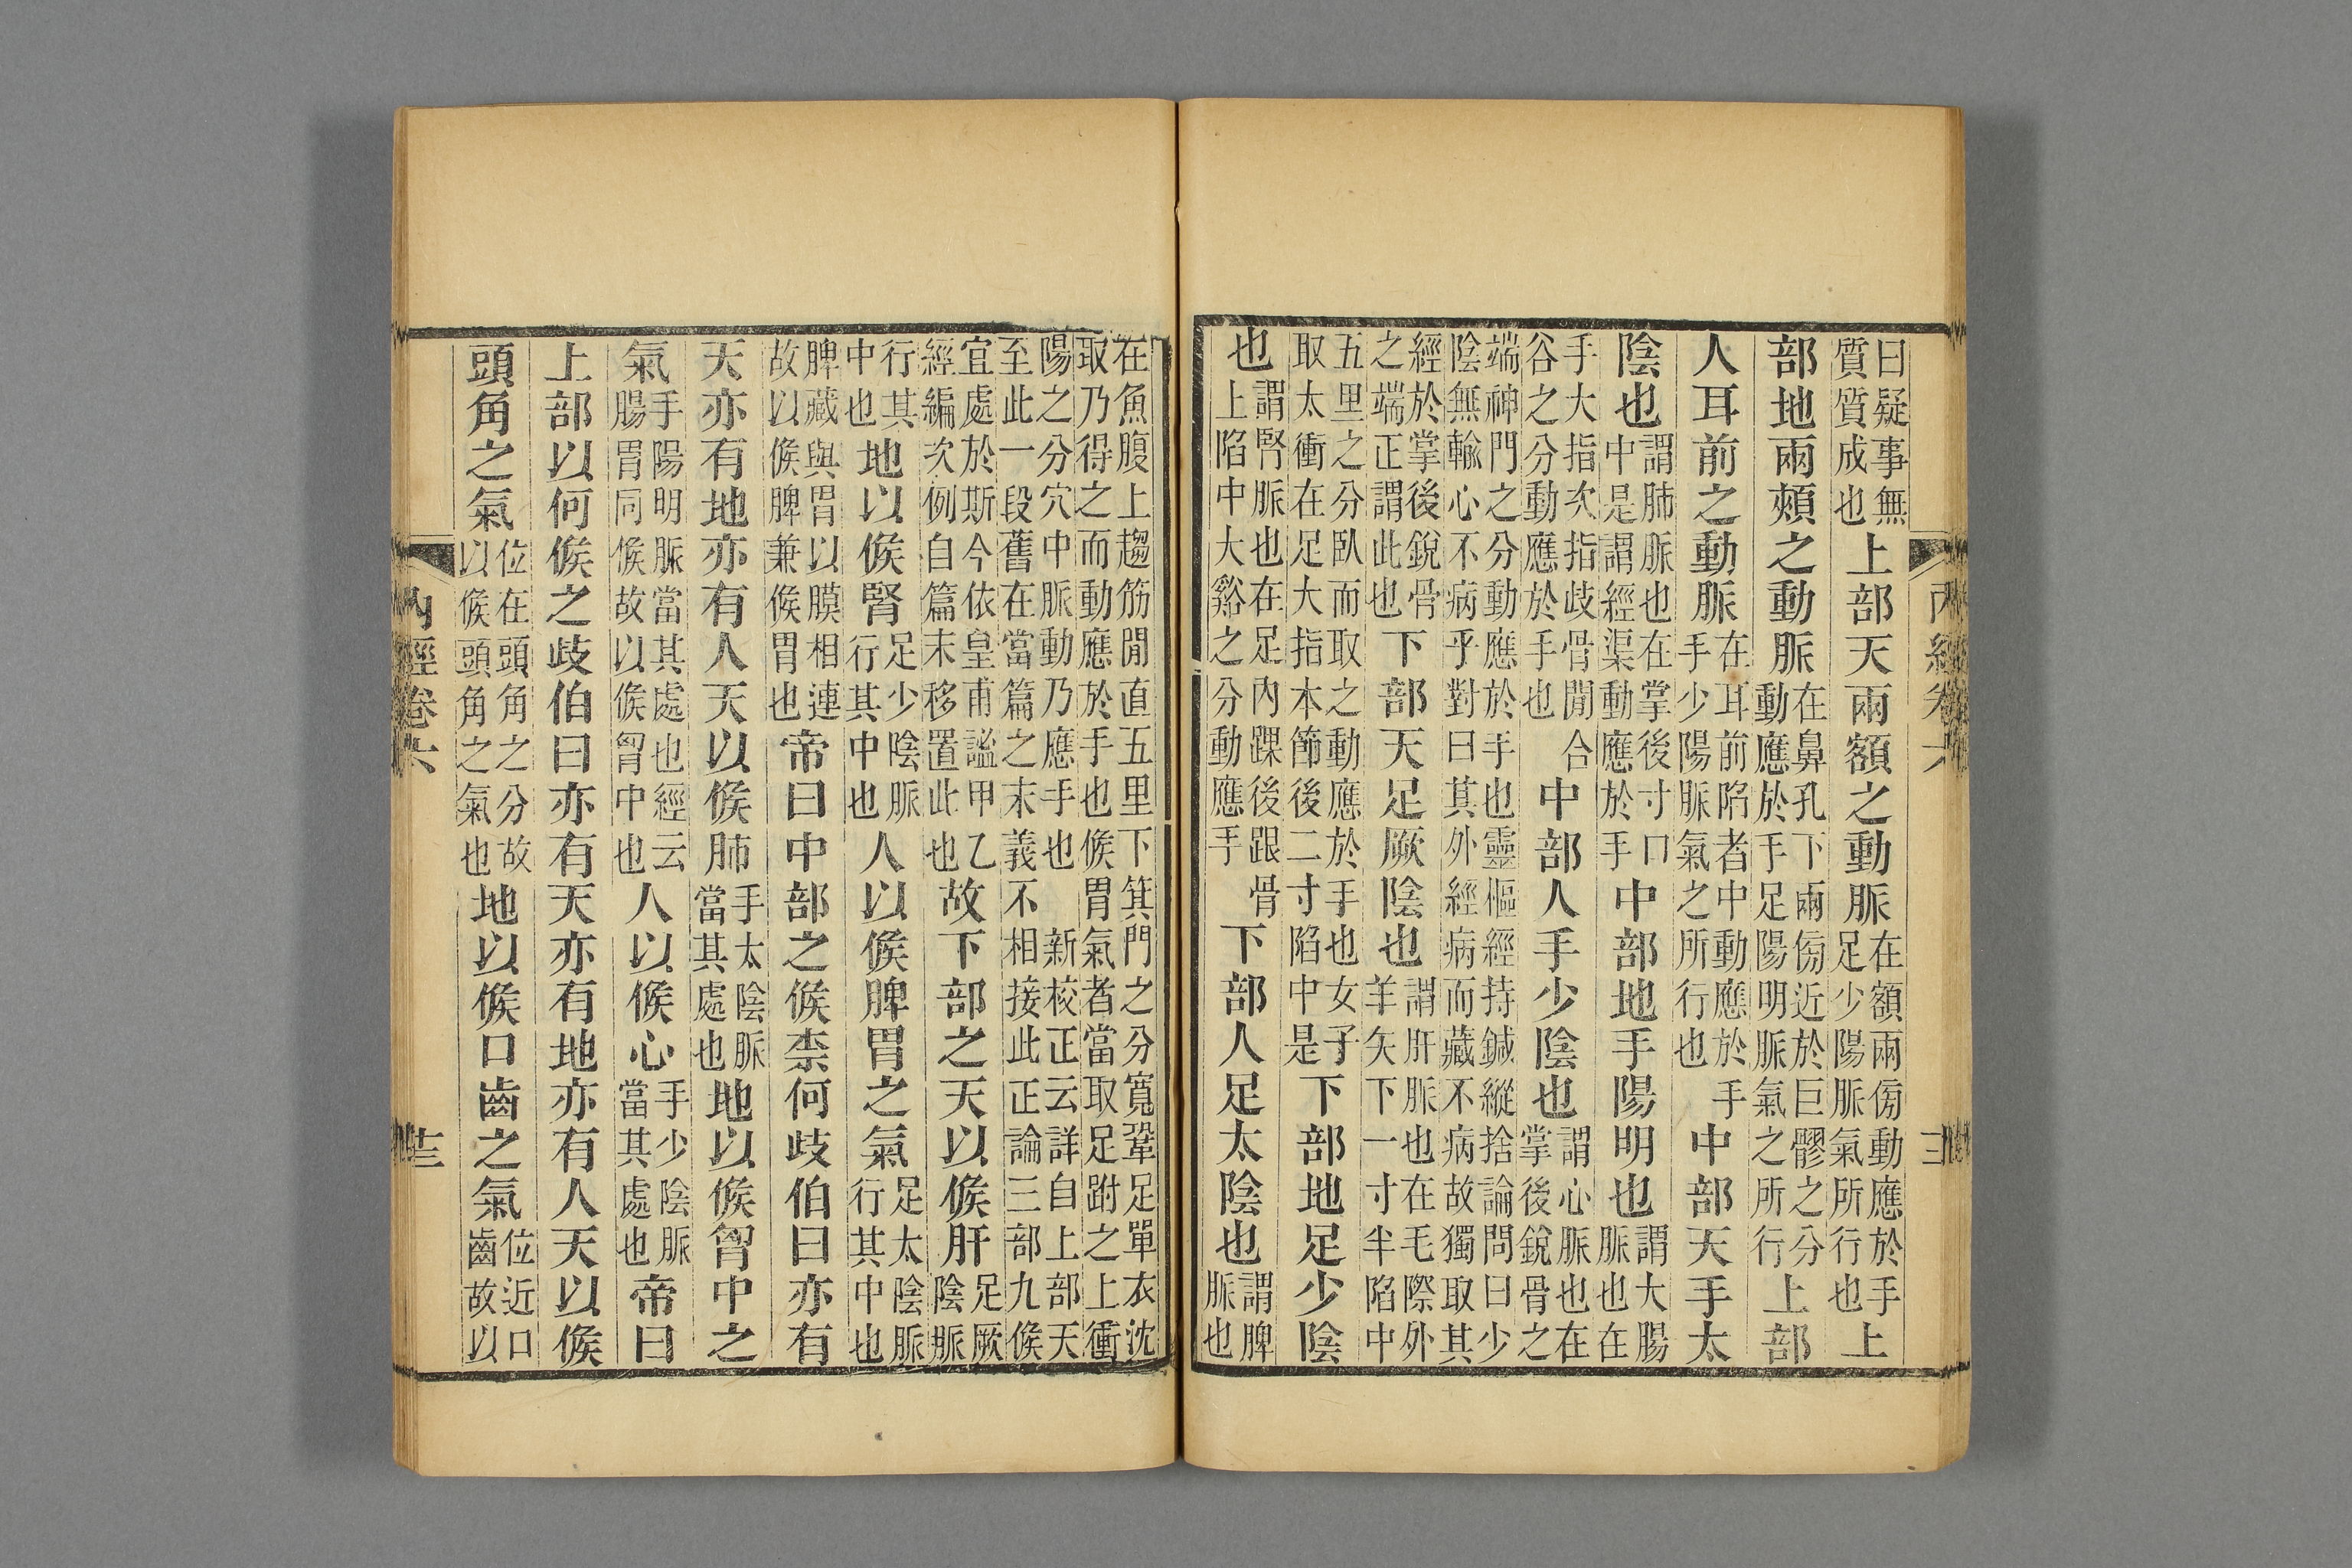 曰疑事無質質成也上部天兩額之動脈在額兩傍動應於手足少陽脈氣所行也上
部地兩頰之動脈在鼻孔下兩傍近於巨髎之分動應於手足陽明脈氣之所行上部
人耳前之動脈在耳前陷者中動應於手手少陽脈氣之所行也中部天手太
陰也謂肺脈也在掌後寸口中是謂經渠動應於手中部地手陽明也謂大腸脈也在
手大指次指歧骨閒合谷之分動應於手也中部人手少陰也謂心脈也在掌後銳骨之
端神門之分動應於手也靈樞經持鍼縱捨論問曰少陰無輸心不病乎對曰其外經病而藏不病故獨取其
經於掌後銳骨之端正謂此也下部天足厥陰也謂肝脈也在毛際外羊矢下一寸半陷中
五里之分臥而取之動應於手也女子取太衝在足大指本節後二寸陷中是下部地足少陰
也謂腎脈也在足內踝後跟骨上陷中大谿之分動應手下部人足太陰也謂脾脈也
在魚腹上趨筋閒直五里下箕門之分寬鞏足單衣沈取乃得之而動應於手也候胃氣者當取足跗之上衝
陽之分穴中脈動乃應手也新校正云詳自上部天至此一段舊在當篇之末義不相接此正論三部九候
宜處於斯今依皇甫謐甲乙經編次例自篇末移置此也故下部之天以候肝足厥陰脈
行其中也地以候腎足少陰脈行其中也人以候脾胃之氣足太陰脈行其中也
脾藏與胃以膜相連故以候脾兼候胃也帝曰中部之候柰何歧伯曰亦有
天亦有地亦有人天以候肺手太陰脈當其處也地以候胷中之
氣手陽明脈當其處也經云腸胃同候故以候胷中也人以候心手少陰脈當其處也帝曰
上部以何候之歧伯曰亦有天亦有地亦有人天以候
頭角之氣位在頭角之分故以候頭角之氣也地以候口齒之氣位近口齒故以
內經卷六